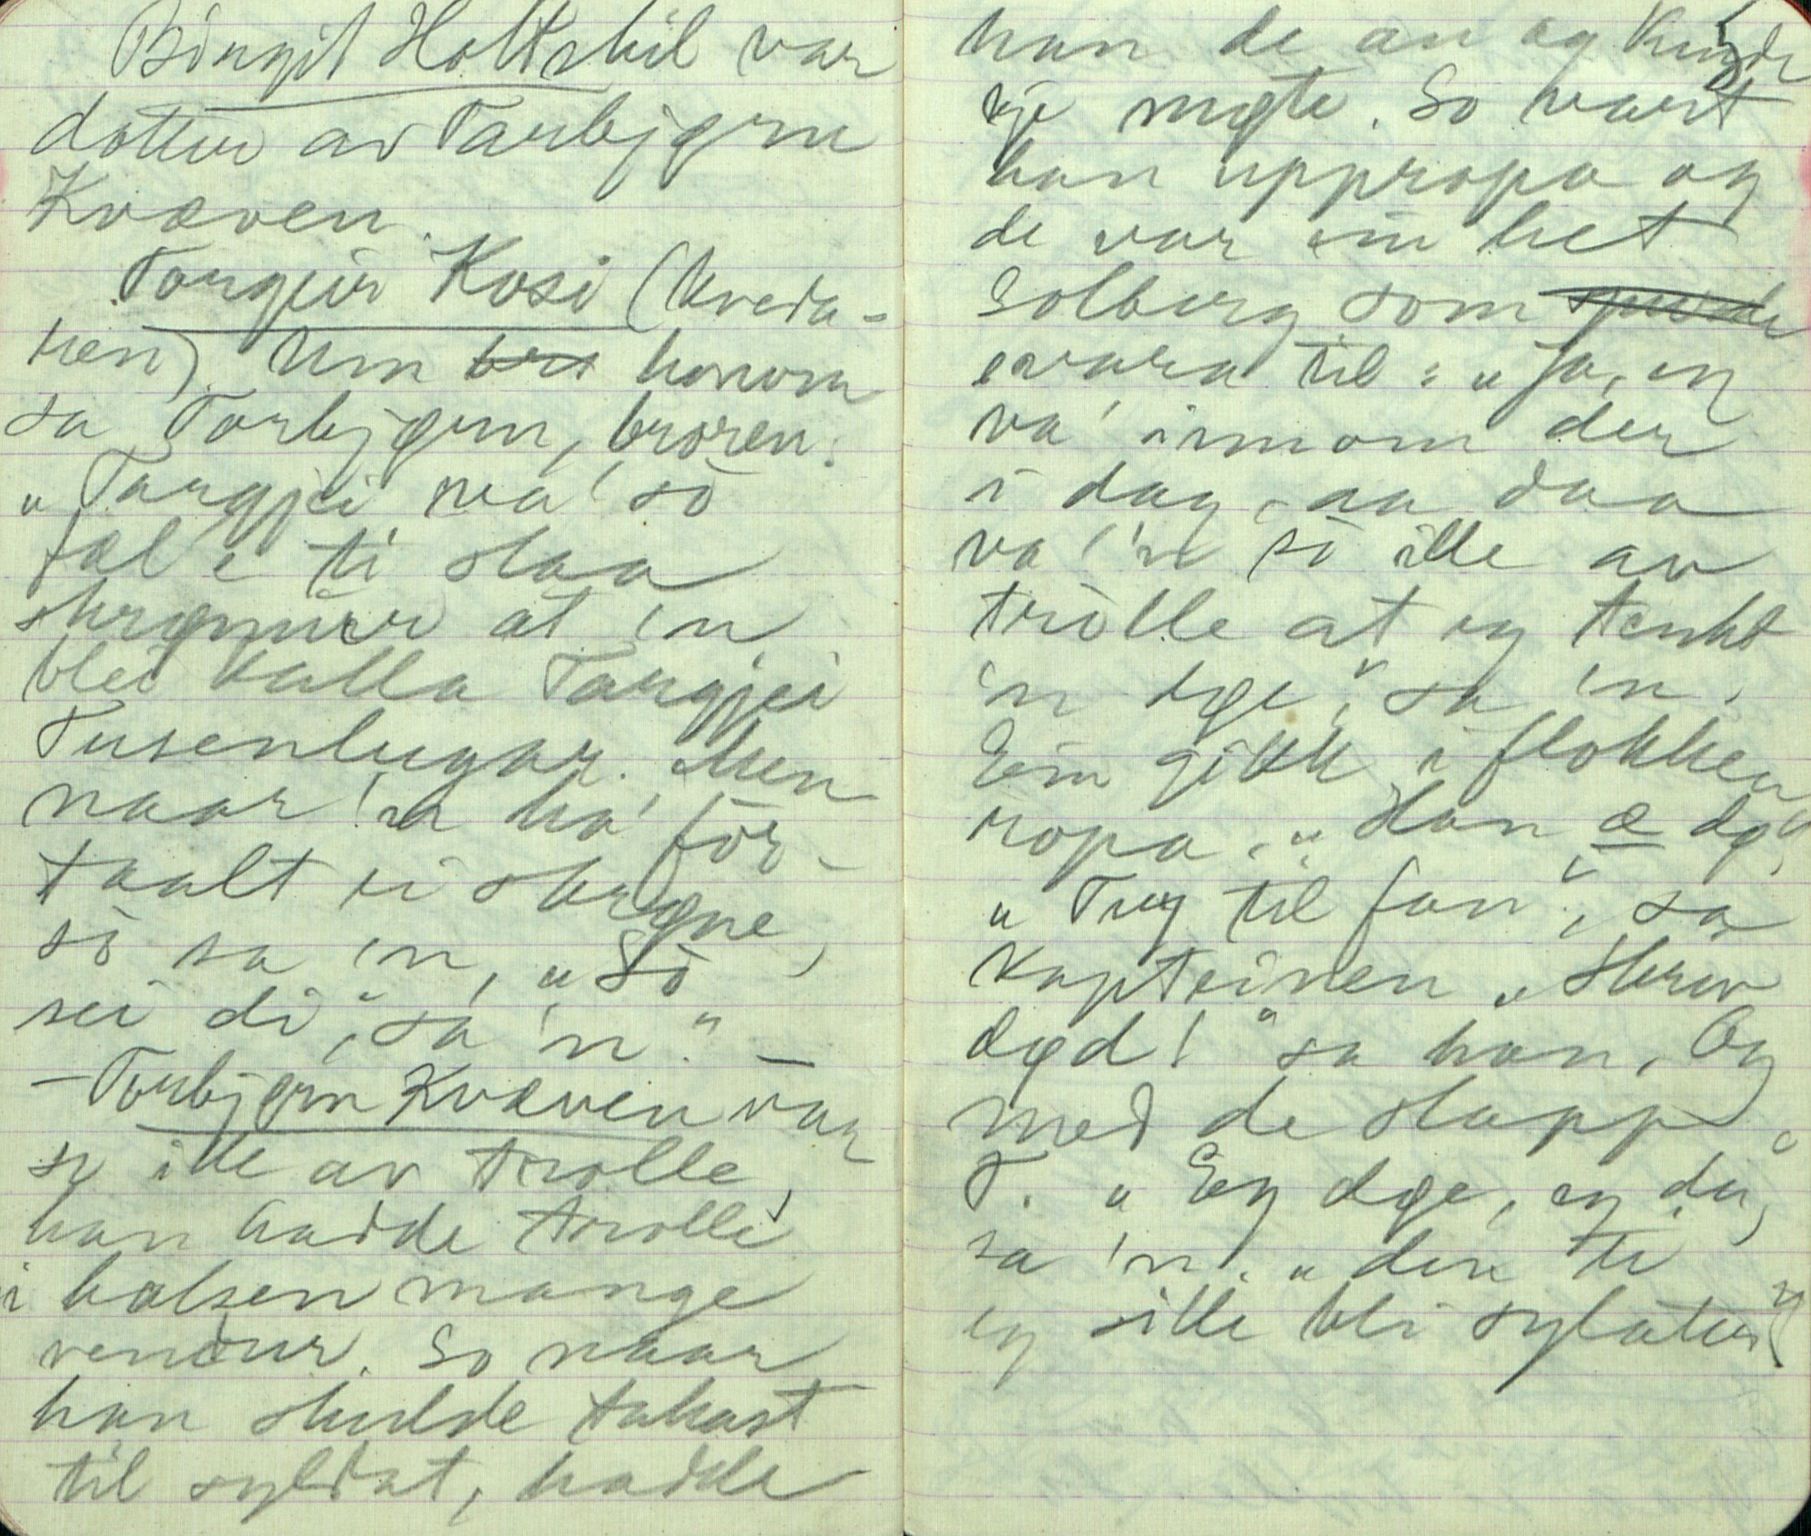 Bingit Holtskil var
dotter av Tarbjørn
Kvæven.
Torgeir Kosi (kveda-
ren). Um honom
sa Torbjørn, broren:
„Targjei va' sò
fæl e ti slaa
skrønur at 'n
blei kalla Targjei
Tusenlugar. Men
naar 'n ha' for-
taalt ei skrøne,
sò sa 'n, „Sò
sei di," sa 'n." —
— Torbjørn Kvæven var
so ille av trolle,
han hadde trolle
i halsen mange
vendur. So naar
han skulde takast
til syldat, hadde
han de an og kunde
kje møte. So vart
han uppropa og
de var ein het
Solberg som
svara til: „Ja, eg
va' innom der
i dag, aa daa
va' 'n sò ille av
tròlle at eg tenkt
'n døe," sa 'n.
Ein gikk i flokken
ropa. „Han æ dø",
„Tvy til fan", sa
kapteinen „Skriv
død!" sa han. Og
med de slapp
T. „Eg døe, eg du,
sa 'n. „den ti
eg sille bli sylater"